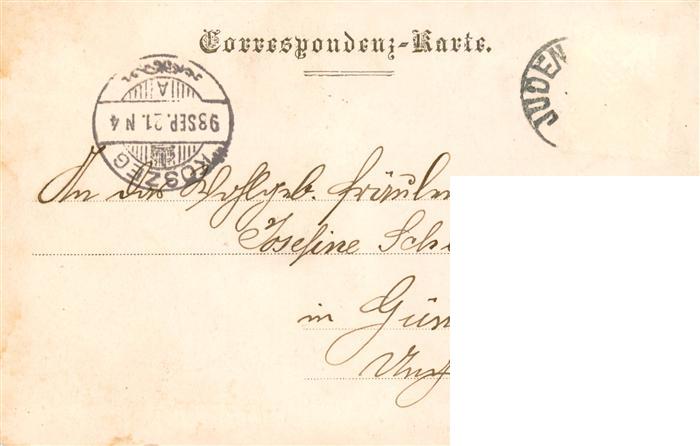 Correspondenz-Karte.
KŐSZEG
98 SEP. 21. N 4
A
JUDEN
An das Wohlgeb. Fräulein
Josefine Sch
in Gün
Ung